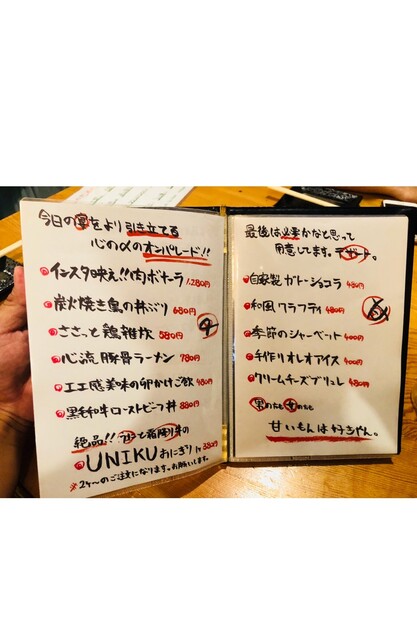 今日の宴をより引き立てる
心の〆のオンパレード!!
インスタ映え!!肉ボナーラ 1.280円
炭火焼き鳥の丼ぶり 680円
ささっと鶏雑炊 580円
心流 豚骨ラーメン 780円
エエ感美味の卵かけご飯 480円
黒毛和牛ローストビーフ丼 880円
絶品!! 霜降り牛の
UNIKUおにぎり 1ヶ382円
※2ヶ〜のご注文になります。お願いします。
〆
最後は必要かなと思って
用意してます。デザート。
自家製ガトーショコラ 480円
和風クラフティ 480円
季節のシャーベット 400円
手作りオレオアイス 400円
クリームチーズブリュレ 480円
男のたも 女のたも
甘いもんは好きやん。